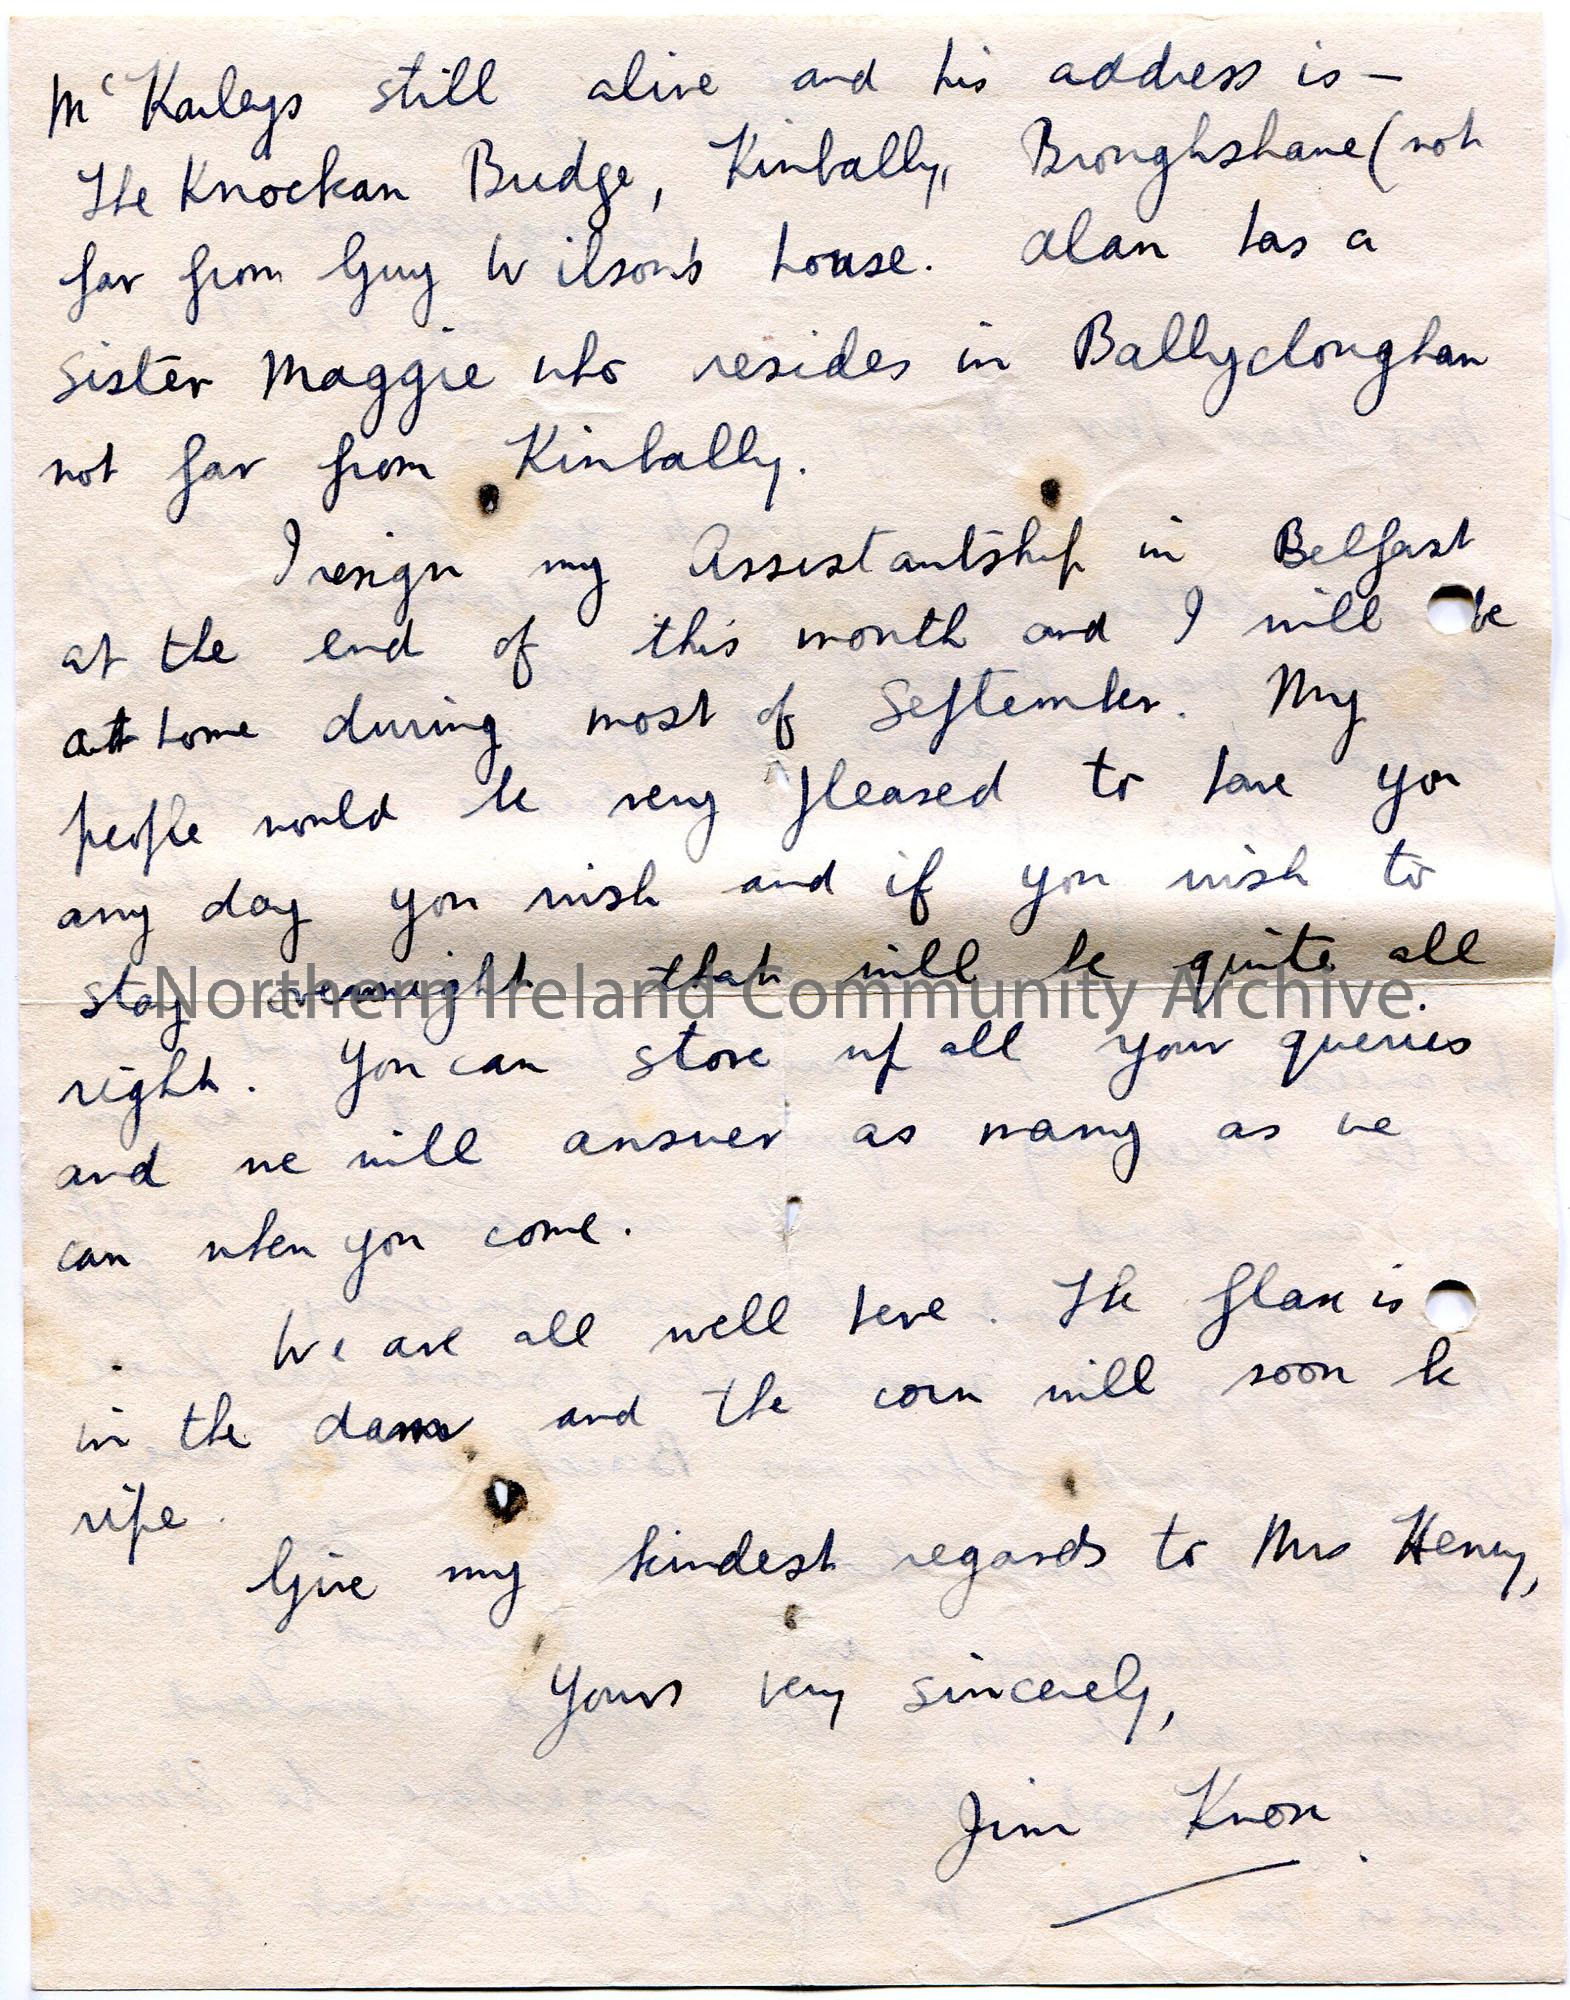 McKauleys still alive and his address is –
The Knockan Bridge, Kinbally, Broughshane (not
far from Guy Wilson's house. Alan has a
sister Maggie who resides in Ballycloughan
not far from Kinbally.
I resign my Assistantship in Belfast
at the end of this month and I will be
at home during most of September. My
people would be very pleased to have you
any day you wish and if you wish to
stay overnight that will be quite all
Northern Ireland Community Archive
right. You can store up all your queries
and we will answer as many as we
can when you come.
We are all well here. The flax is
in the dam and the corn will soon be
ripe.
Give my kindest regards to Mrs Henry,
Yours very sincerely,
Jim Knox.